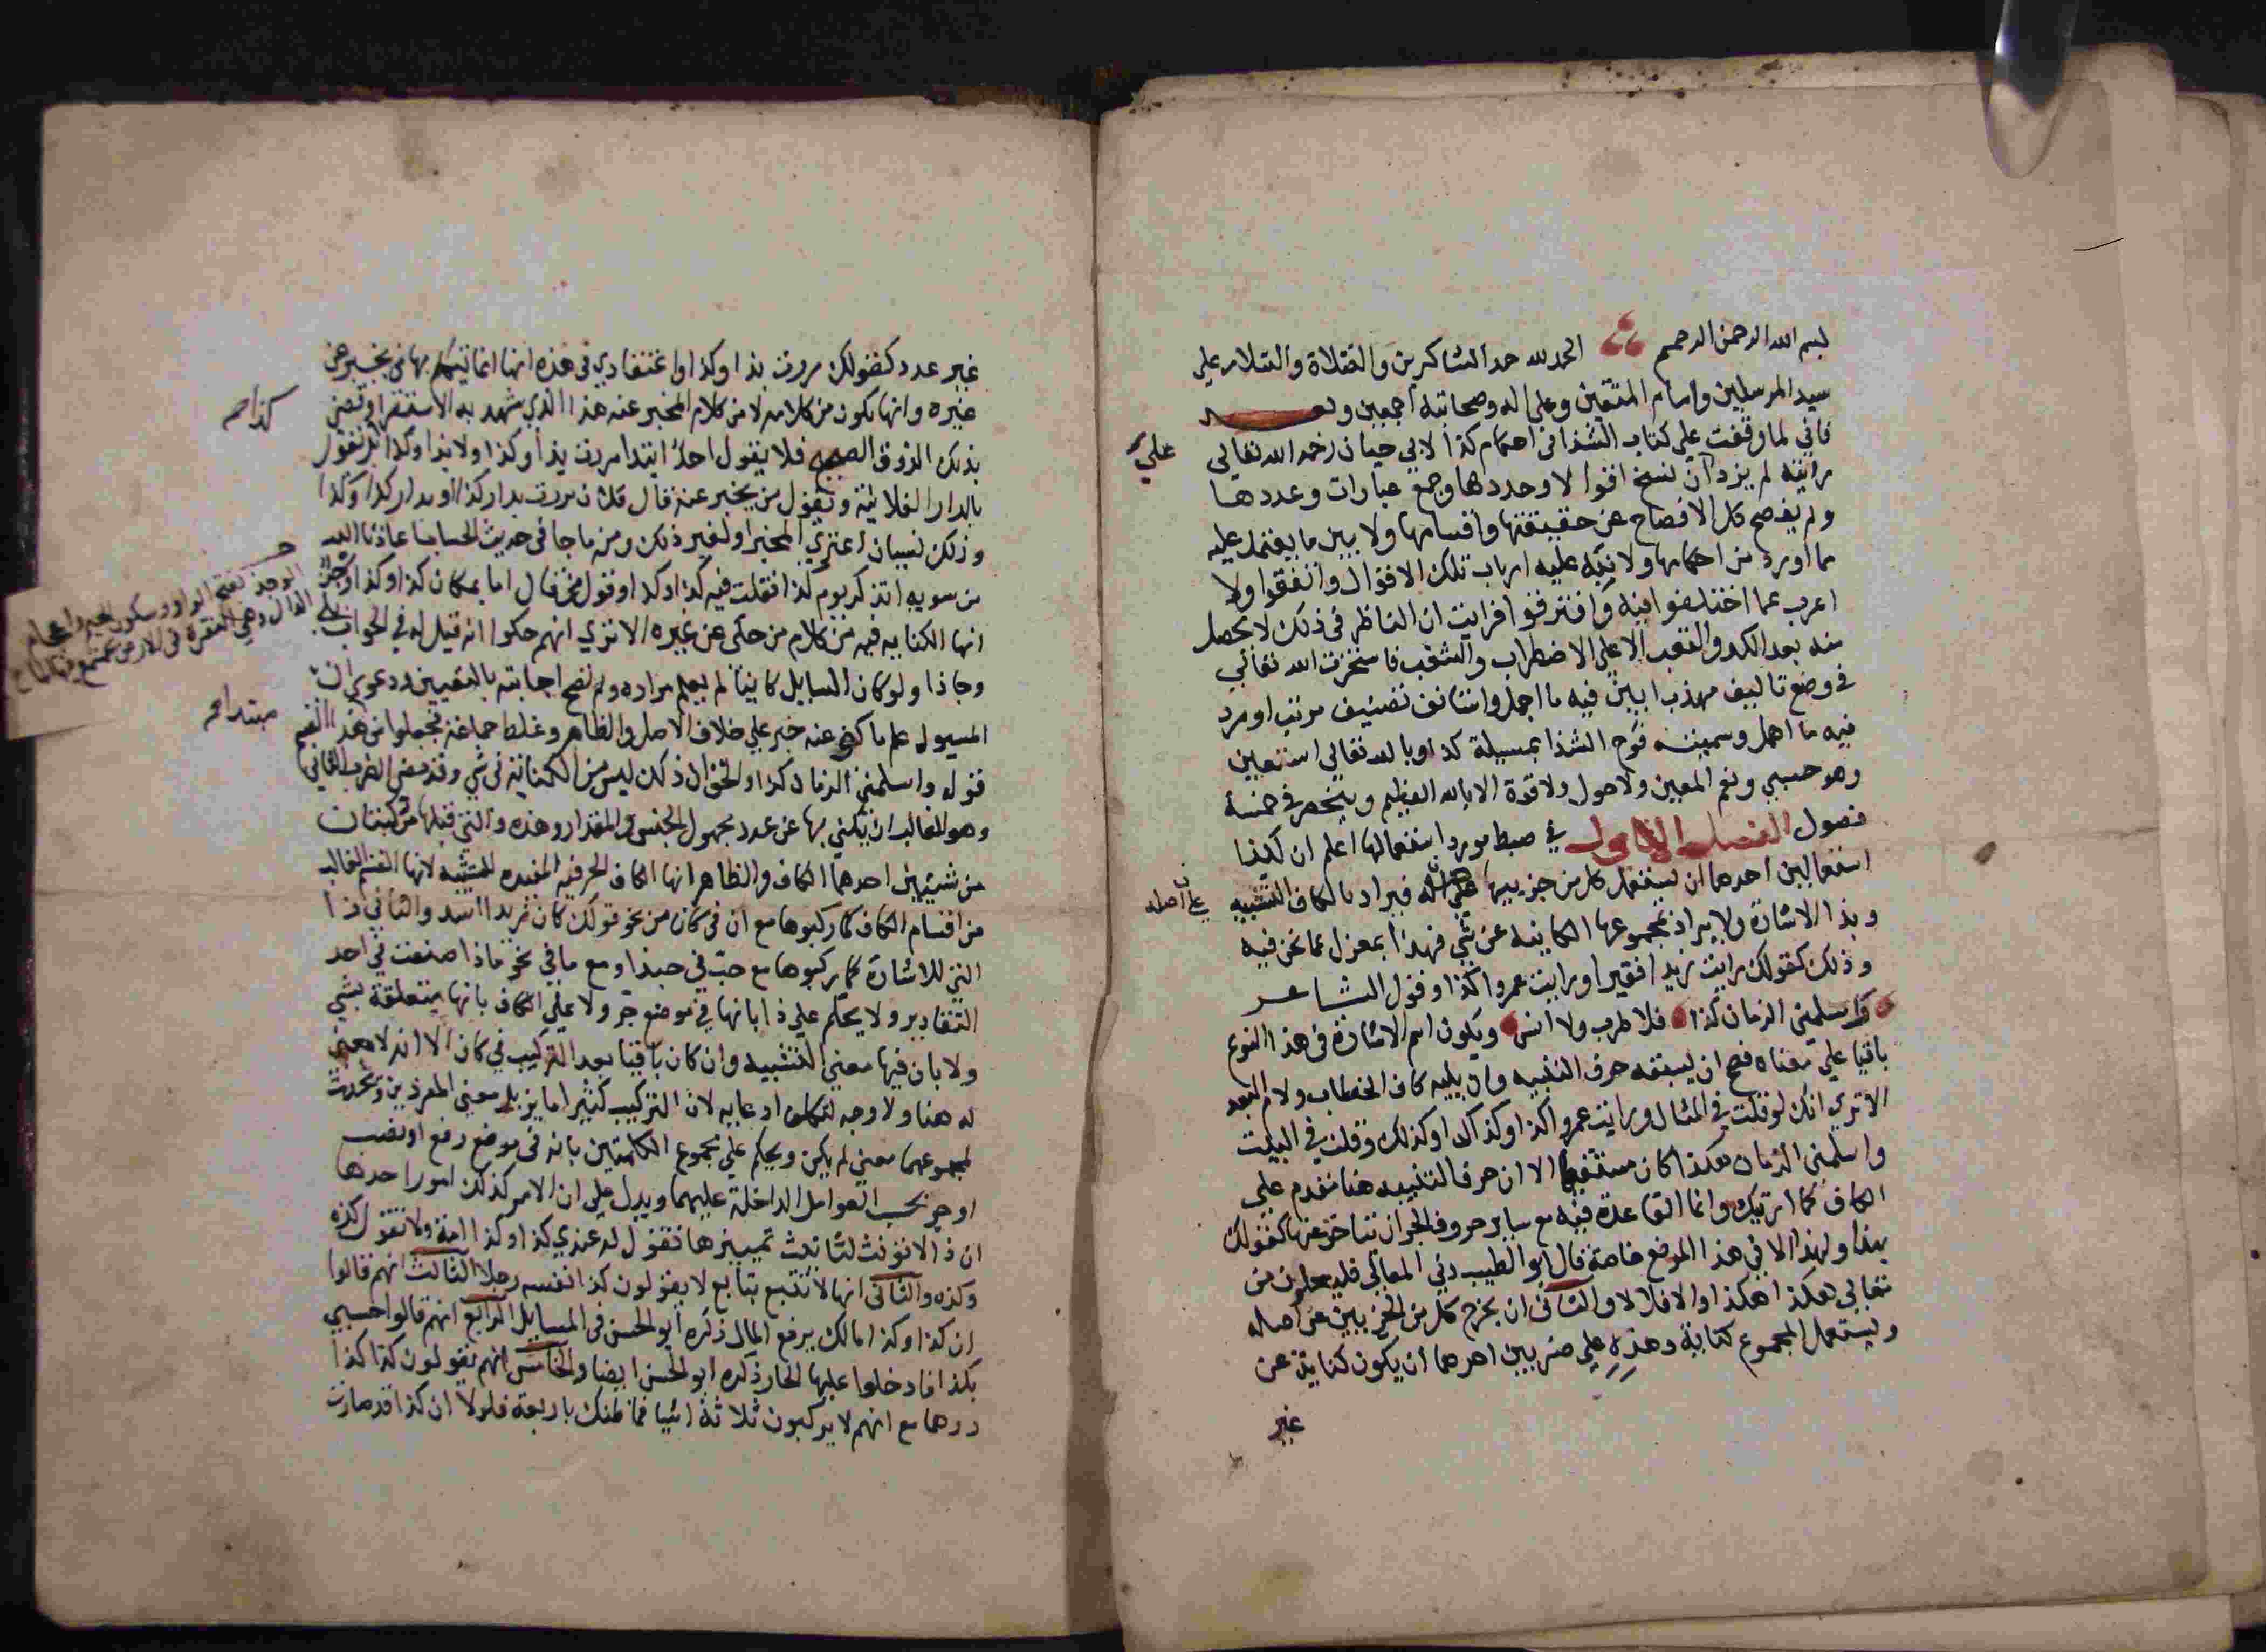 بسم الله الرحمن الرحيم الحمد لله حمد الشاكرين والصلاة والسلام على
سيد المرسلين وامام المتقين وعلى اله وصحابته اجمعين وبعد
فاني لما وقفت علي كتاب الشذا في احكام كذا لابي حيان رحمه الله تعالي
رايته لم يزد آن نسخ اقوالا وحددها وجمع عبارات وعددها
ولم يفصح كل الافصاح عن حقيقتها واقسامها ولا بين ما يعتمد عليه
مما اورده من احكامها ولا نبّه عليه ارباب تلك الاقوال واتفقوا ولا
اعرب عما اختلفوا فيه وافترقوا فرايت ان الناظر في ذلك لا يحصل
منه بعد الكد والتعب الا علي الاضطراب والشغب فاستخرت الله تعالي
في وضع تاليف مهذب ابين فيه ما اجمل واستانف تصنيف مرتب اورد
فيه ما اهمل وسميته فوح الشذا بمسيلة كذا وبالله تعالي استعين
وهو حسبي ونعم المعين ولا حول ولا قوة الا بالله العظيم وينحصر في خمسة
فصول الفصل الاول في ضبط موارد استعمالها اعلم ان لكذا
استعمالين احدهما ان يستعمل كل من جزييها علي اصله فيراد بالكاف التشبيه
وبذا الاشارة ولا يراد بمجموعها الكناية عن شي فهذا بمعزل عما نحن فيه
وذلك كقولك رايت زيدا فقيرا ورايت عمروا كذا وقول الشاعر
واسلمني الزمان كذا فلا طرب ولا انس ويكون اسم الاشارة في هذا النوع
باقيا علي معناه فصح ان يسبقه حرف التنبيه وان يليه كاف الخطاب ولام البعد
الا تري انك لو قلت في المثال ورايت عمروا كذا او كذاك او كذلك وقلت في البيت
واسلمني الزمان هكذا كان مستقيما الا ان حرف التنبيه هنا متقدم علي
الكاف كما اريتك وانما القاعدة فيه مع ساير حروف الجر ان تتاخر عنها كقولك
بهذا ولهذا الا في هذا الموضع خاصة قال ابو الطيب ذي المعالي فليعلون من
تعالي هكذا هكذا والا فلا لا والثاني ان يخرج كل من الجزيين عن اصله
ويستعمل المجموع كناية وهذه علي ضربين احدهما ان يكون كناية عن
غير
علي
علي اصله
غير عدد كقولك مررت بذا وكذا واعتقادي في هذه انها انما يتكلم بها من يخبر عن
غيره وانها تكون من كلامه لا من كلام المخبر عنه هذا الذي شهد به الاستقرا وقضي
بذلك الذوق الصحيح فلا يقول احدٌ ابتدا مررت بذا وكذا ولا بذا وكذا بل تقول
بالدار الفلانية وتقول من يخبر عنه قال فلان مررت بدار كذا او بدار كذا وكذا
وذلك لنسيان اعتري المخبر او لغير ذلك ومنه ما جا في حديث الحساب اعاذنا الله
من سويه اتذكر يوم كذا فعلت فيه كذا وكذا وقول من قال اما بمكان كذا وكذا وجذ
انها الكناية فيه من كلام من حكي عن غيره الا تري انهم حكوا انه قيل له في الجواب بلي
وجاذا ولو كان السايل كانيا لم يعلم مراده ولم تصح اجابته بالتعيين ودعوي ان
المسيول علم ما كني عنه خبر علي خلاف الاصل والظاهر وغلط جماعة فجعلوا من هذا القسم
قوله واسلمني الزمان كذا والحق ان ذلك ليس من الكناية في شي وقد مضي الضرب الثاني
وهو الغالب ان يكني بها عن عدد مجهول الجنس والمقدار وهذه والتي قبلها مركبتان
من شيئين احدهما الكاف والظاهر انها الكاف الحرفيه المفيده للتشبيه لانها القسم الغالب
من اقسام الكاف كما ركبوها مع ان في كان من نحو قولك كان زيدا اسد والثاني ذا
التي للاشارة كما ركبوها مع حبّ في حبذا ومع ما في نحو ماذا صنعت في احد
التقادير ولا يحكم علي ذا بانها في موضع جرّ ولا علي الكاف بانها يتعلقة بشي
ولا بان فيها معني التشبيه وان كان باقيا بعد التركيب في كان الا انه لا معني
له هنا ولا وجه لتكلف ادعايه لان التركيب كثيرا ما يزيل معني المفردين وتحدث
لمجموعهما معني لم يكن ويحكم علي مجموع الكلمتين بانه في موضع رفع او نصب
او جر بحسب العوامل الداخلة عليهما ويدل علي ان الامر كذلك امور احدها
ان ذا لا تؤنث لتانيث تمييزها فتقول له عندي كذا وكذا امة ولا تقول كذه
وكذه والثاني انها لا تتبع بتابع لا يقولون كذا نفسه رجلا الثالث انهم قالوا
ان كذا وكذا مالك برفع المال ذكره ابو الحسن في المسايل الرابع انهم قالوا حسبي
بكذا فادخلوا عليها الجار ذكره ابو الحسن ايضا والخامس انهم يقولون كذا كذا
درهما مع انهم لا يركبون ثلاثة اشيا فما ظنك باربعة فلولا ان كذا قد صارت
كذا صح
الوجذ بفتح الواو وسكون الجيم واعجام
الذال وهي النقرة في الارض يجتمع فيها الماء
مبتدا صح